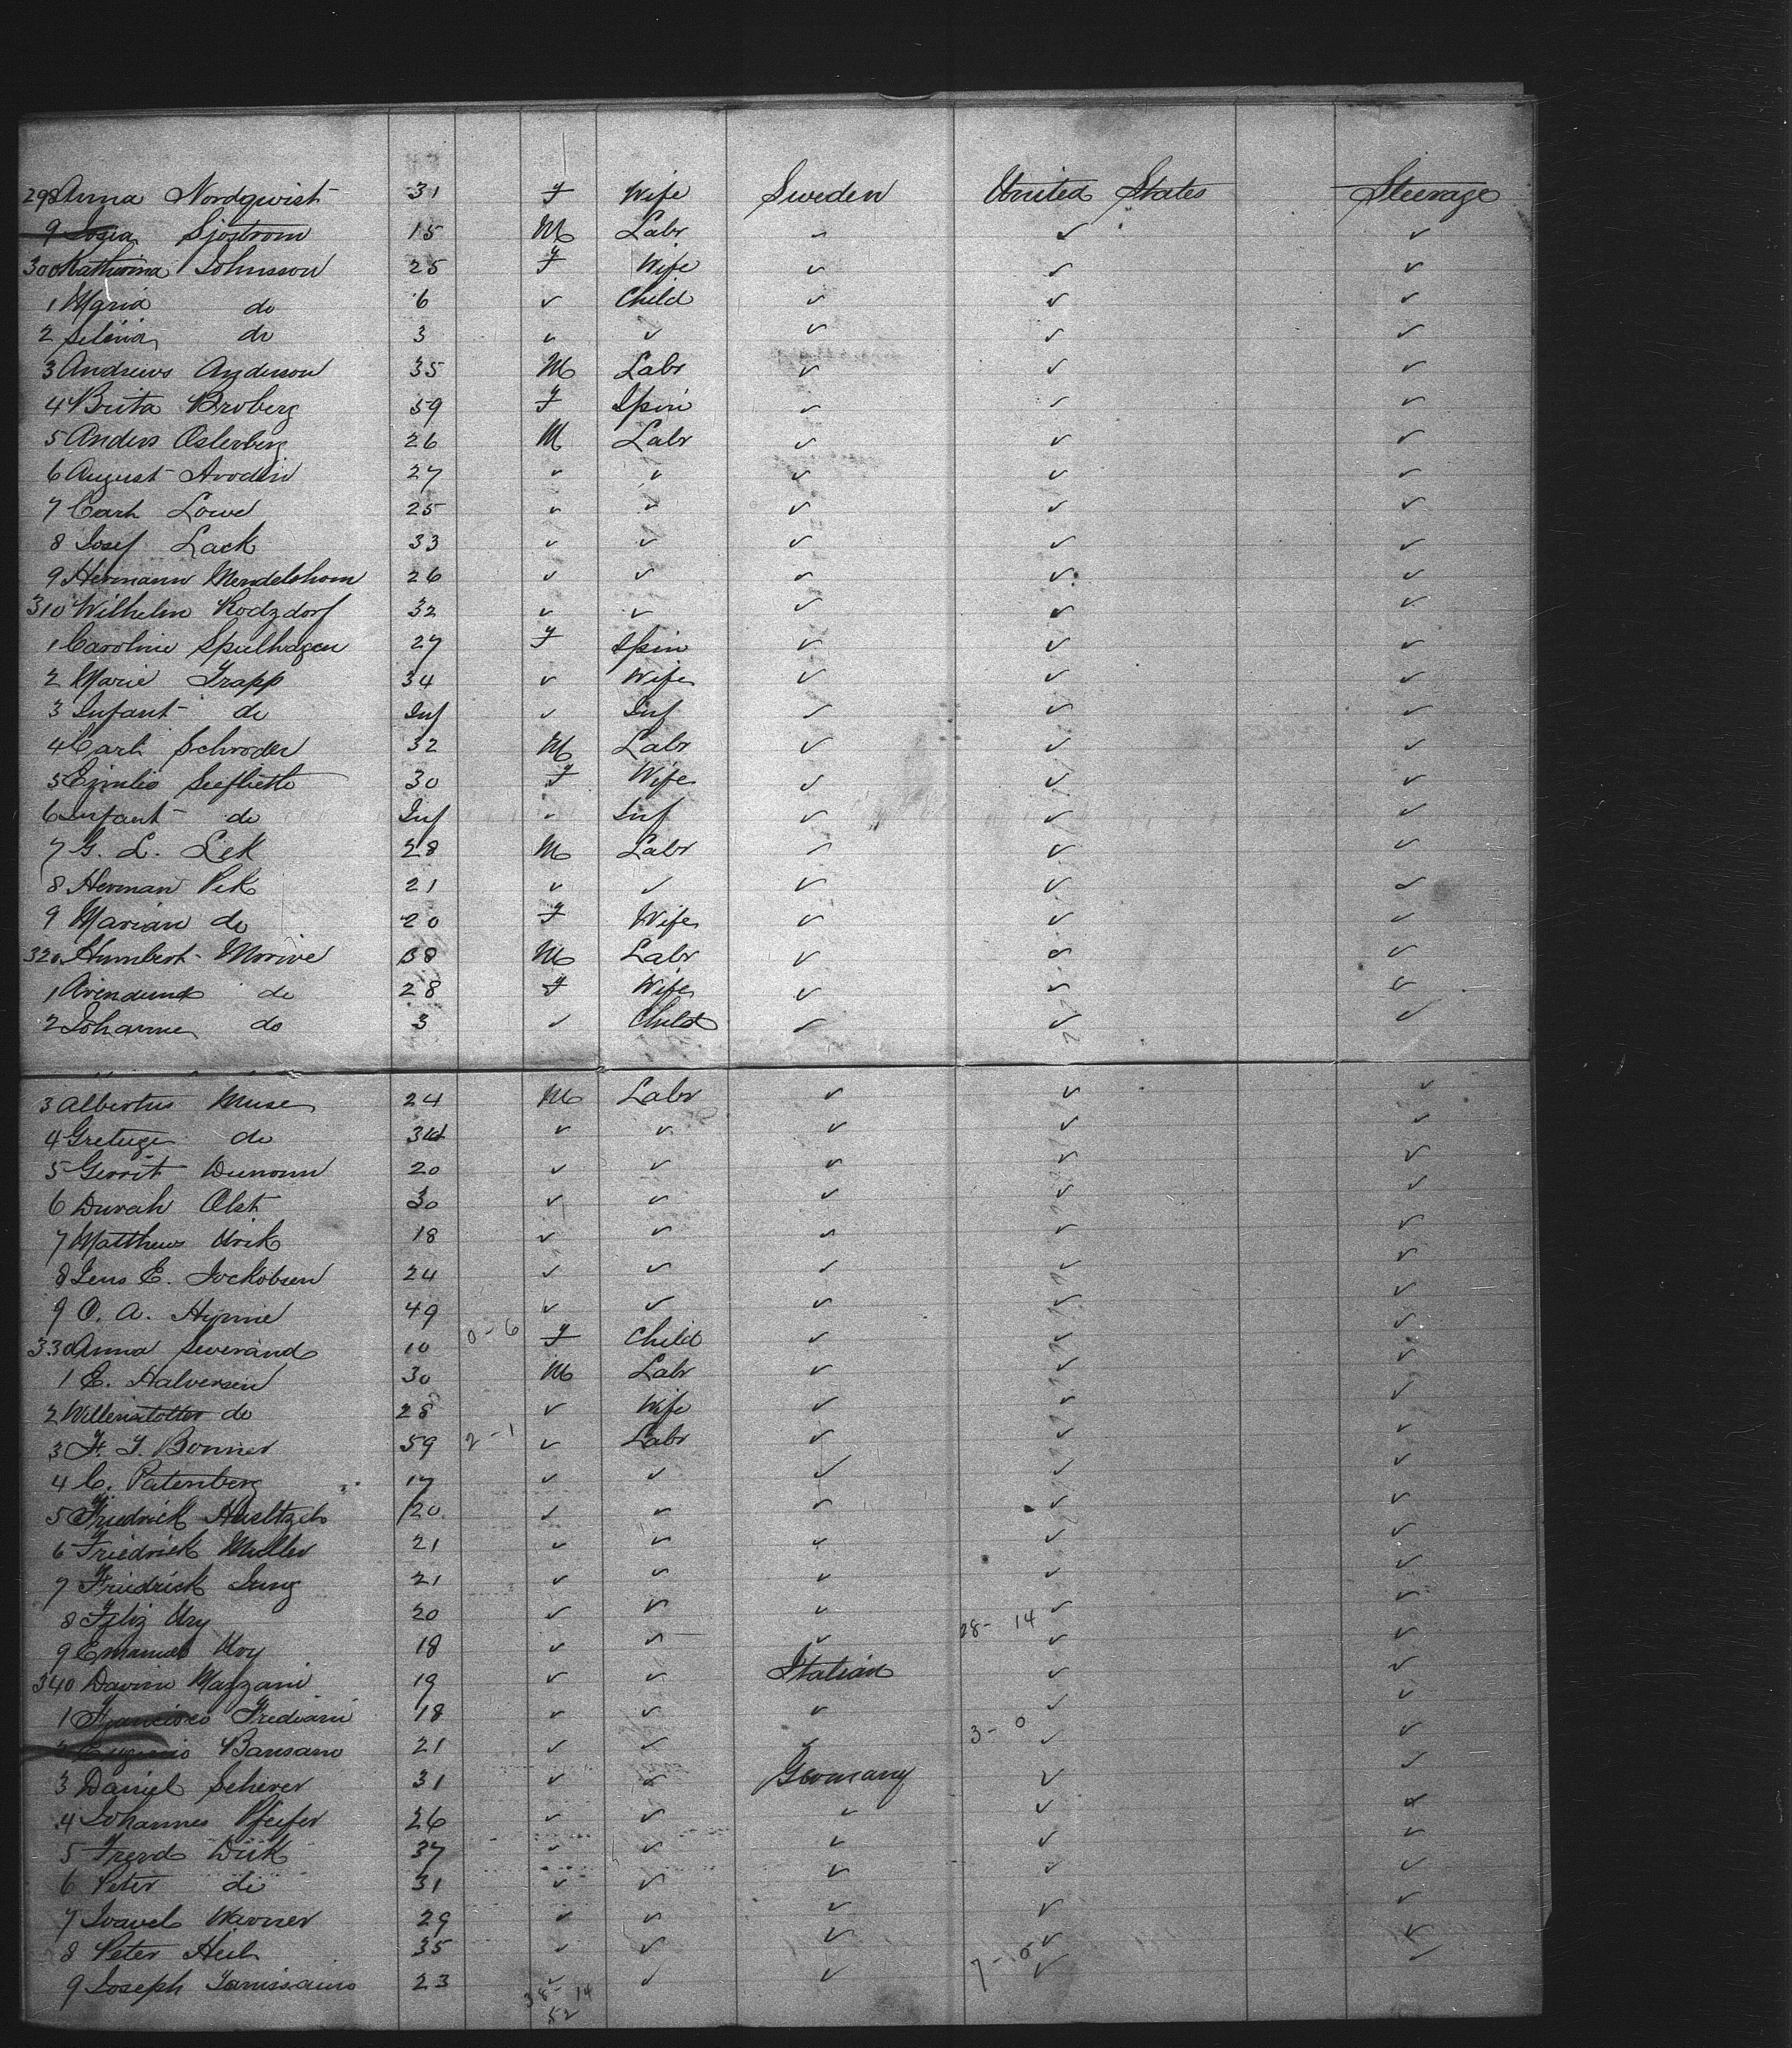 298 Anna Nordqwist 31 F Wife Sweden United States Steerage
9 Sjostrom 15 M Labr ✓ ✓ ✓
300 Katherina Johnsson 25 F Wife ✓ ✓ ✓
1 Maria do 6 ✓ Child ✓ ✓ ✓
2 Selina do 3 ✓ ✓ ✓ ✓ ✓
3 Andrews Anderson 35 M Labr ✓ ✓ ✓
4 Brita Broberg 59 F Spin ✓ ✓ ✓
5 Anders Osterberg 26 M Labr ✓ ✓ ✓
6 August Avodin 27 ✓ ✓ ✓ ✓ ✓
7 Carl Lowe 25 ✓ ✓ ✓ ✓ ✓
8 Josef Lack 33 ✓ ✓ ✓ ✓ ✓
9 Hermann Mendelshom 26 ✓ ✓ ✓ ✓ ✓
310 Wilhelm Rodzdorf 32 ✓ ✓ ✓ ✓ ✓
1 Caroline Spielhagen 27 F Spin ✓ ✓ ✓
2 Marie Trapp 34 ✓ Wife ✓ ✓ ✓
3 Infant do Inf ✓ Inf ✓ ✓ ✓
4 Carl Schroder 32 M Labr ✓ ✓ ✓
5 Emilie 30 F Wife ✓ ✓ ✓
6 Infant do Inf ✓ Inf ✓ ✓ ✓
7 G. L. Lek 28 M Labr ✓ ✓ ✓
8 Herman Pek 21 ✓ ✓ ✓ ✓ ✓
9 Marian do 20 F Wife ✓ ✓ ✓
320 Humbert Morive 38 M Labr ✓ ✓ ✓
1 do 28 F Wife ✓ ✓ ✓
2 Johanne do 3 ✓ Child ✓ ✓ ✓
3 Albertus Muse 24 M Labr ✓ ✓ ✓
4 do ✓ ✓ ✓ ✓ ✓
5 Gerrit 20 ✓ ✓ ✓ ✓ ✓
6 Durah Olst 30 ✓ ✓ ✓ ✓ ✓
7 Matthews Urik 18 ✓ ✓ ✓ ✓ ✓
8 Jens E. Jockobsen 24 ✓ ✓ ✓ ✓ ✓
9 O. A. 49 ✓ ✓ ✓ ✓ ✓
330 Anna Severand 10 0-6 F Child ✓ ✓ ✓
1 E. Halversen 30 M Labr ✓ ✓ ✓
2 do 28 ✓ Wife ✓ ✓ ✓
3 F. J. Bonner 59 2-1 ✓ Labr ✓ ✓ ✓
4 C. Patenberg 17 ✓ ✓ ✓ ✓ ✓
5 Friedrick 20 ✓ ✓ ✓ ✓ ✓
6 Friedrick Muller 21 ✓ ✓ ✓ ✓ ✓
7 Friedrick Jung 21 ✓ ✓ ✓ ✓ ✓
8 Feliz Ury 20 ✓ ✓ ✓ 28-14 ✓ ✓
9 Emanuel Ury 18 ✓ ✓ ✓ ✓ ✓
340 Davini Mazzani 19 ✓ ✓ Italian ✓ ✓
1 Francisco Frediani 18 ✓ ✓ ✓ ✓ ✓
2 Eugenio Bansano 21 ✓ ✓ ✓ 3-0 ✓ ✓
3 Daniel Scherer 31 ✓ ✓ Germany ✓ ✓
4 Johannes Pfeifer 26 ✓ ✓ ✓ ✓ ✓
5 Frerd Dick 37 ✓ ✓ ✓ ✓ ✓
6 Peter do 31 ✓ ✓ ✓ ✓ ✓
7 Warner 29 ✓ ✓ ✓ ✓ ✓
8 Peter Heil 35 ✓ ✓ ✓ ✓ ✓
9 Joseph 23 ✓ ✓ ✓ 7-0 ✓ ✓
38-14
52